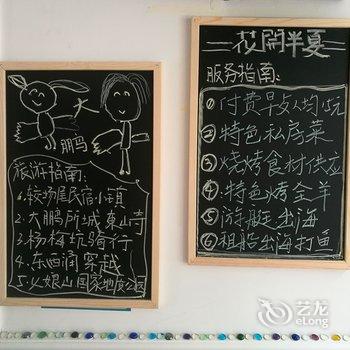 大
鹏
旅游指南:
1.较场尾民宿小镇
2.大鹏所城東山寺
3.杨梅坑骑行
4.东西涌穿越
5.七娘山国家地质公园
花開半夏
服务指南:
①付费早
②特色私房菜
③烧烤食材供应
④:特色烤全羊
⑤游艇出海
⑥租船出海打鱼
艺龙
eLong